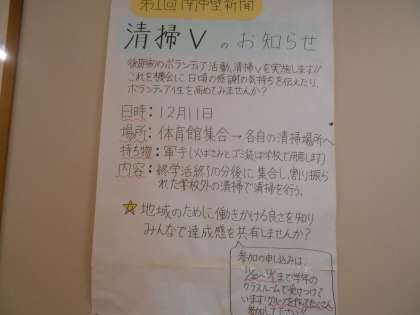 第1回 南中整新聞
清掃Vのお知らせ
後期初のボランティア活動、清掃Vを実施します!!
これを機会に日頃の感謝の気持ちを伝えたり、
ボランティア性を高めてみませんか?
日時:12月11日
場所:体育館集合→各自の清掃場所へ
持ち物:軍手(火ばさみとゴミ袋は学校で用意します)
内容:終学活後10分後に集合し、割り振ら
れた学校外の清掃で清掃を行う。
☆地域のために働きかける良さを知り
みんなで達成感を共有しませんか?
参加の申し込みは、
まで学年の
クラスルームで受けつけて
います!グループを作ってたくさん
参加して下さい!!